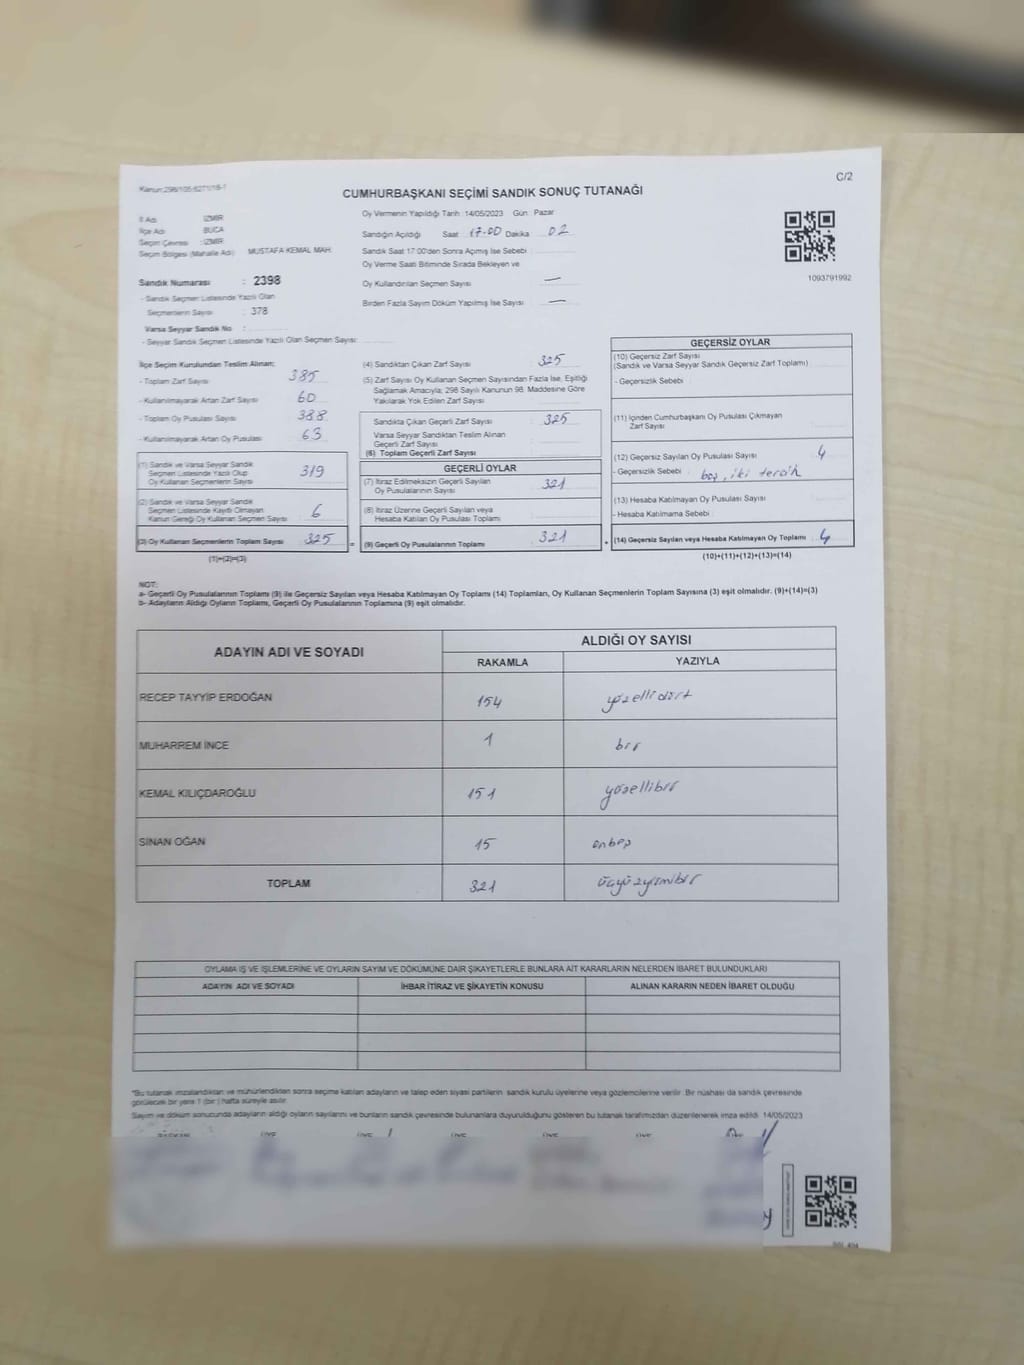 Kanun:298/105-6271/18-1
C/2
CUMHURBAŞKANI SEÇİMİ SANDIK SONUÇ TUTANAĞI
İl Adı : İZMİR
İlçe Adı : BUCA
Seçim Çevresi : İZMİR
Seçim Bölgesi (Mahalle Adı) : MUSTAFA KEMAL MAH.
Sandık Numarası : 2398
- Sandık Seçmen Listesinde Yazılı Olan
Seçmenlerin Sayısı : 378
Varsa Seyyar Sandık No :
- Seyyar Sandık Seçmen Listesinde Yazılı Olan Seçmen Sayısı:
Oy Vermenin Yapıldığı Tarih :14/05/2023 Gün : Pazar
Sandığın Açıldığı Saat 17.00 Dakika 02
Sandık Saat 17:00'den Sonra Açımış İse Sebebi
Oy Verme Saati Bitiminde Sırada Bekleyen ve
Oy Kullandırılan Seçmen Sayısı —
Birden Fazla Sayım Döküm Yapılmış İse Sayısı —
1093791992
İlçe Seçim Kurulundan Teslim Alınan:
- Toplam Zarf Sayısı 385
- Kullanılmayarak Artan Zarf Sayısı 60
- Toplam Oy Pusulası Sayısı 388
- Kullanılmayarak Artan Oy Pusulası 63
(1) Sandık ve Varsa Seyyar Sandık
Seçmen Listesinde Yazılı Olup
Oy Kullanan Seçmenlerin Sayısı 319
(2) Sandık ve Varsa Seyyar Sandık
Seçmen Listesinde Kayıtlı Olmayan
Kanun Gereği Oy Kullanan Seçmen Sayısı : 6
(3) Oy Kullanan Seçmenlerin Toplam Sayısı 325
(1)+(2)=(3)
(4) Sandıktan Çıkan Zarf Sayısı 325
(5) Zarf Sayısı Oy Kullanan Seçmen Sayısından Fazla İse, Eşitliği
Sağlamak Amacıyla; 298 Sayılı Kanunun 98. Maddesine Göre
Yakılarak Yok Edilen Zarf Sayısı
Sandıkta Çıkan Geçerli Zarf Sayısı 325
Varsa Seyyar Sandıktan Teslim Alınan
Geçerli Zarf Sayısı
(6) Toplam Geçerli Zarf Sayısı
GEÇERLİ OYLAR
(7) İtiraz Edilmeksizin Geçerli Sayılan
Oy Pusulalarının Sayısı 321
(8) İtiraz Üzerine Geçerli Sayılan veya
Hesaba Katılan Oy Pusulası Toplamı
= (9) Geçerli Oy Pusulalarının Toplamı 321
GEÇERSİZ OYLAR
(10) Geçersiz Zarf Sayısı
(Sandık ve Varsa Seyyar Sandık Geçersiz Zarf Toplamı)
- Geçersizlik Sebebi
(11) İçinden Cumhurbaşkanı Oy Pusulası Çıkmayan
Zarf Sayısı
(12) Geçersiz Sayılan Oy Pusulası Sayısı 4
- Geçersizlik Sebebi : boş, iki tercih
(13) Hesaba Katılmayan Oy Pusulası Sayısı
- Hesaba Katılmama Sebebi
+ (14) Geçersiz Sayılan veya Hesaba Katılmayan Oy Toplamı 4
(10)+(11)+(12)+(13)=(14)
NOT:
a- Geçerli Oy Pusulalarının Toplamı (9) ile Geçersiz Sayılan veya Hesaba Katılmayan Oy Toplamı (14) Toplamları, Oy Kullanan Seçmenlerin Toplam Sayısına (3) eşit olmalıdır. (9)+(14)=(3)
b- Adayların Aldığı Oyların Toplamı, Geçerli Oy Pusulalarının Toplamına (9) eşit olmalıdır.
ADAYIN ADI VE SOYADI
ALDIĞI OY SAYISI
RAKAMLA YAZIYLA
RECEP TAYYİP ERDOĞAN 154 yüzellidört
MUHARREM İNCE 1 bir
KEMAL KILIÇDAROĞLU 151 yüzellibir
SİNAN OĞAN 15 onbeş
TOPLAM 321 üçyüzyirmibir
OYLAMA İŞ VE İŞLEMLERİNE VE OYLARIN SAYIM VE DÖKÜMÜNE DAİR ŞİKAYETLERLE BUNLARA AİT KARARLARIN NELERDEN İBARET BULUNDUKLARI
ADAYIN ADI VE SOYADI İHBAR İTİRAZ VE ŞİKAYETİN KONUSU ALINAN KARARIN NEDEN İBARET OLDUĞU
*Bu tutanak imzalandıktan ve mühürlendikten sonra seçime katılan adayların ve talep eden siyasi partilerin sandık kurulu üyelerine veya gözlemcilerine verilir. Bir nüshası da sandık çevresinde
görülecek bir yere 1 (bir) hafta süreyle asılır.
Sayım ve döküm sonucunda adayların aldığı oyların sayılarını ve bunların sandık çevresinde bulunanlara duyurulduğunu gösteren bu tutanak tarafımızdan düzenlenerek imza edildi. 14/05/2023